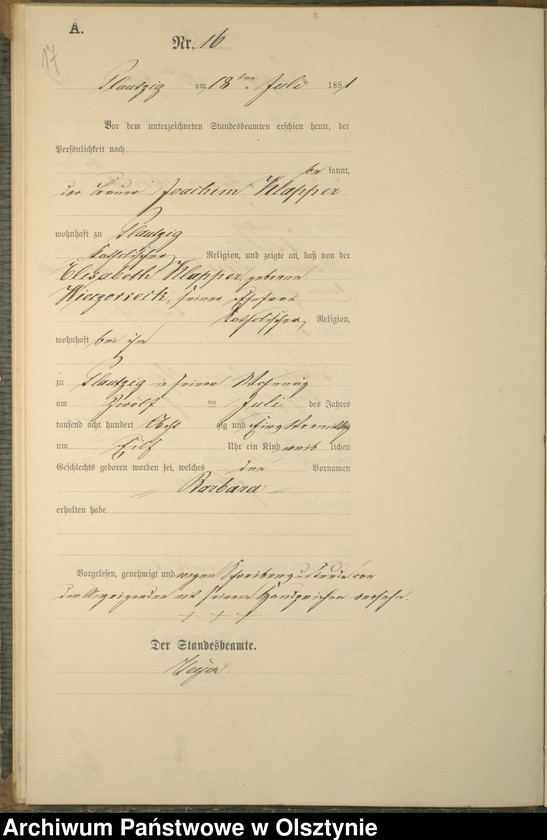 A.
17
Nr. 16
Plautzig am 18ten Juli 1881
Vor dem unterzeichneten Standesbeamten erschien heute, der
Persönlichkeit nach
be kannt,
der Bauer Joachim Klapper
wohnhaft zu Plautzig
katholischer Religion, und zeigte an, daß von der
Elisabeth Klapper, geborne
Wieczorieck, seiner Ehefrau
katholischer Religion,
wohnhaft bei ihm
zu Plautzig in seiner Wohnung
am Zwölf ten Juli des Jahres
tausend acht hundert Acht zig und Eins Vormittag
um Elf Uhr ein Kind weib lichen
Geschlechts geboren worden sei, welches den Vornamen
Barbara
erhalten habe
Vorgelesen, genehmigt und wegen Schreibensunkunde von
dem Anzeigenden mit seinem Handzeichen versehn.
+ + +
Der Standesbeamte.
Archiwum Państwowe w Olsztynie